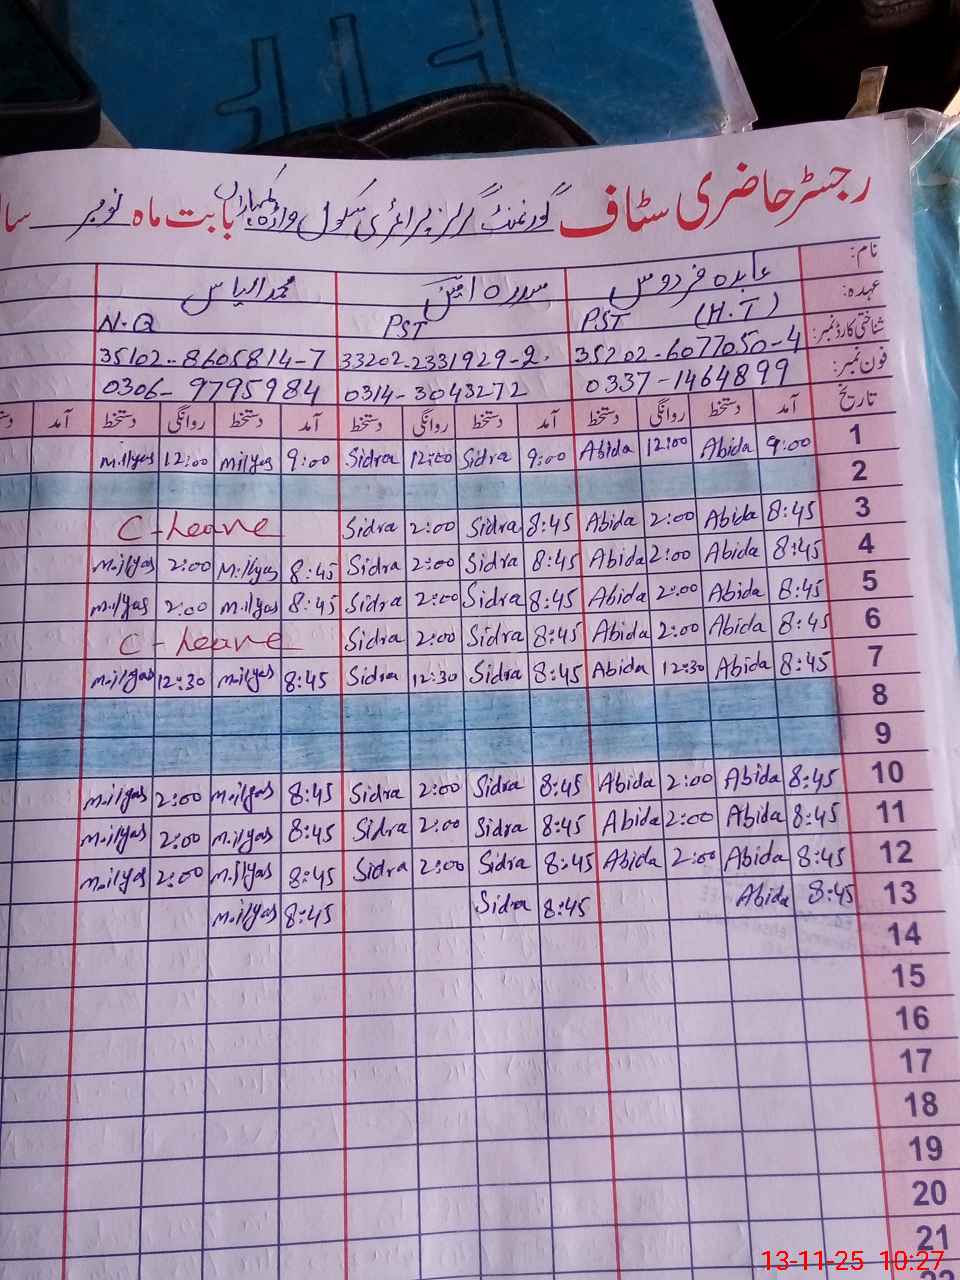 رجسٹر حاضری سٹاف گورنمنٹ گرلز پرائمری سکول واڑہ کمہاراں بابت ماہ نومبر سا
نام: عابدہ فردوس سدرہ محمد الیاس
عہدہ: PST (H.T) PST N.Q
شناختی کارڈ نمبر: 35202-6077050-4 33202-2331929-2 35102-8605814-7
فون نمبر: 0337-1464899 0314-3043272 0306-9795984
تاریخ آمد دستخط روانگی دستخط آمد دستخط روانگی دستخط آمد دستخط روانگی دستخط آمد دستخ
1 9:00 Abida 12:00 Abida 9:00 Sidra 12:00 Sidra 9:00 M.ilyas 12:00 M.ilyas
2
3 8:45 Abida 2:00 Abida 8:45 Sidra 2:00 Sidra C-Leave
4 8:45 Abida 2:00 Abida 8:45 Sidra 2:00 Sidra 8:45 M.ilyas 2:00 M.ilyas
5 8:45 Abida 2:00 Abida 8:45 Sidra 2:00 Sidra 8:45 M.ilyas 2:00 M.ilyas
6 8:45 Abida 2:00 Abida 8:45 Sidra 2:00 Sidra C-Leave
7 8:45 Abida 12:30 Abida 8:45 Sidra 12:30 Sidra 8:45 M.ilyas 12:30 M.ilyas
8
9
10 8:45 Abida 2:00 Abida 8:45 Sidra 2:00 Sidra 8:45 M.ilyas 2:00 M.ilyas
11 8:45 Abida 2:00 Abida 8:45 Sidra 2:00 Sidra 8:45 M.ilyas 2:00 M.ilyas
12 8:45 Abida 2:00 Abida 8:45 Sidra 2:00 Sidra 8:45 M.ilyas 2:00 M.ilyas
13 8:45 Abida 8:45 Sidra 8:45 M.ilyas
14
15
16
17
18
19
20
21
13-11-25 10:27